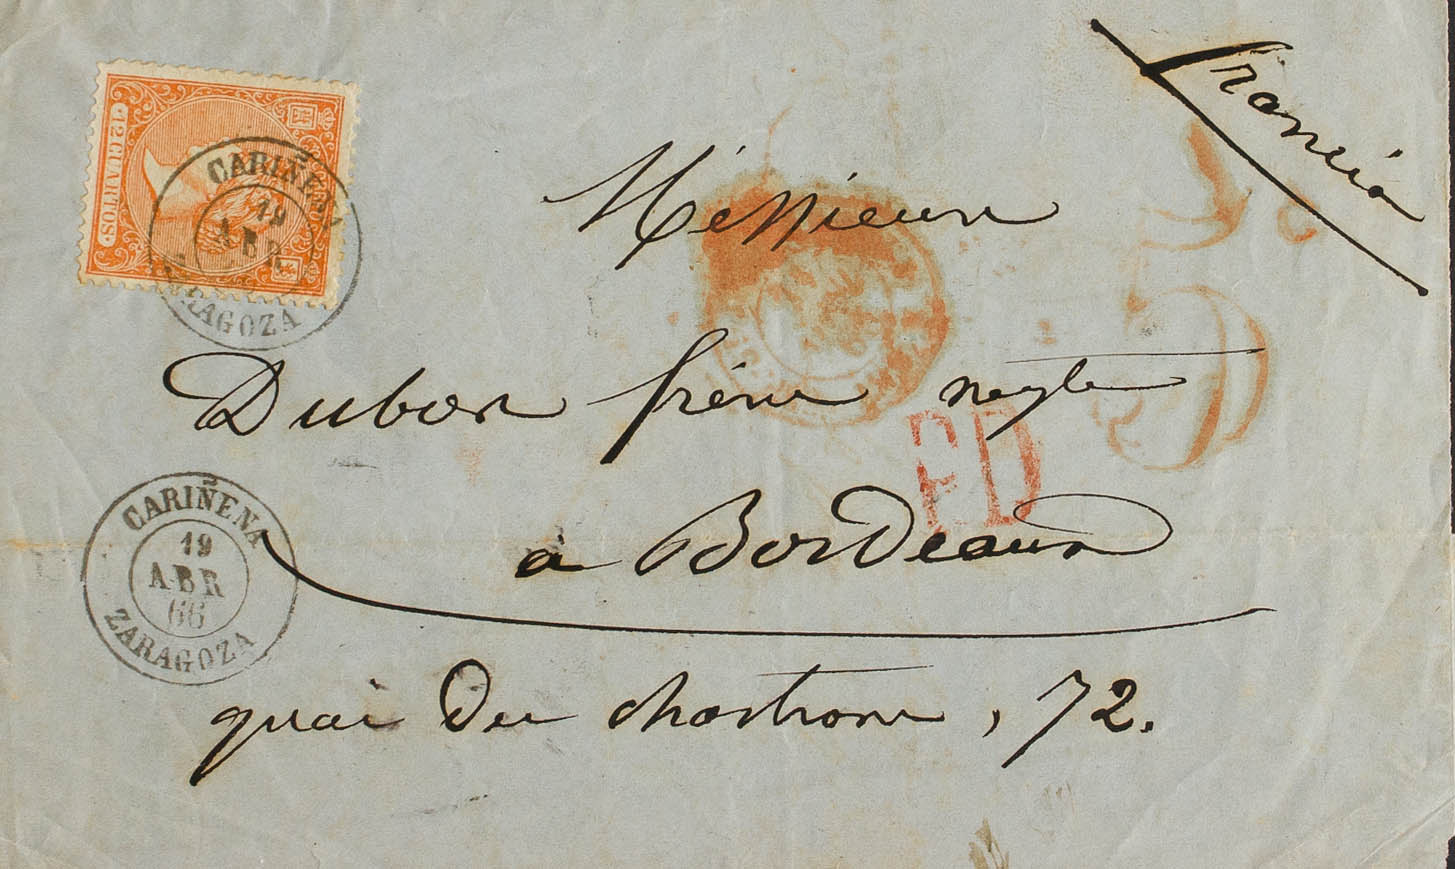 Francia
12 CUARTOS
CARIÑENA
19
ABR
ZARAGOZA
Messieurs
Dubos frères negts
PD
à Bordeaux
CARIÑENA
19
ABR
66
ZARAGOZA
quai des chartrons, 72.